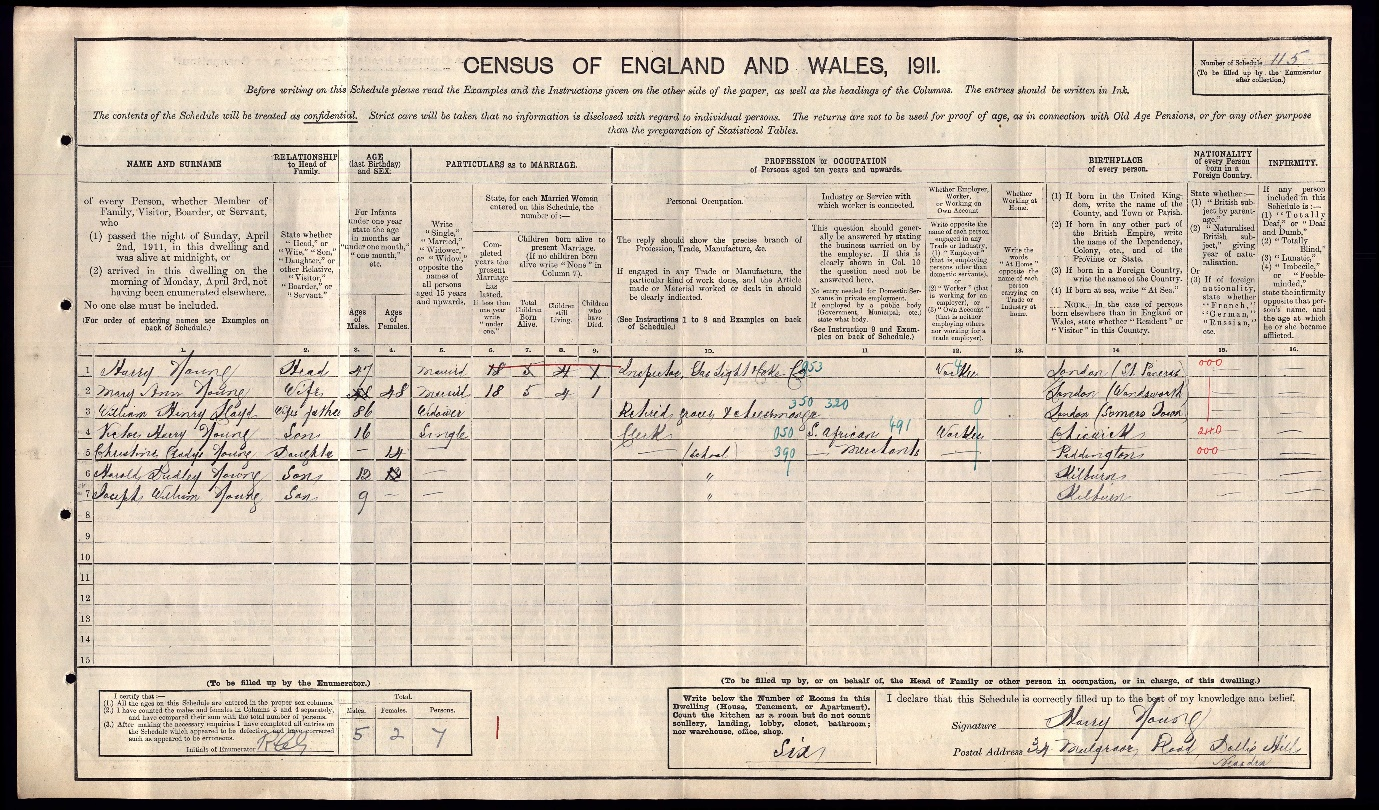 CENSUS OF ENGLAND AND WALES, 1911.
Number of Schedule 115
(To be filled up by the Enumerator after collection.)
Before writing on this Schedule please read the Examples and the Instructions given on the other side of the paper, as well as the headings of the Columns. The entries should be written in Ink.
The contents of the Schedule will be treated as confidential. Strict care will be taken that no information is disclosed with regard to individual persons. The returns are not to be used for proof of age, as in connection with Old Age Pensions, or for any other purpose
than the preparation of Statistical Tables.
NAME AND SURNAME
RELATIONSHIP to Head of Family.
AGE (last Birthday) and SEX.
PARTICULARS as to MARRIAGE.
PROFESSION or OCCUPATION of Persons aged ten years and upwards.
BIRTHPLACE of every person.
NATIONALITY of every Person born in a Foreign Country.
INFIRMITY.
of every Person, whether Member of Family, Visitor, Boarder, or Servant, who
(1) passed the night of Sunday, April 2nd, 1911, in this dwelling and was alive at midnight, or
(2) arrived in this dwelling on the morning of Monday, April 3rd, not having been enumerated elsewhere.
No one else must be included.
(For order of entering names see Examples on back of Schedule.)
State whether "Head," or "Wife," "Son," "Daughter," or other Relative, "Visitor," "Boarder," or "Servant."
For Infants under one year state the age in months as "under one month," "one month," etc.
Ages of Males.
Ages of Females.
Write "Single," "Married," "Widower," or "Widow," opposite the names of all persons aged 15 years and upwards.
State, for each Married Woman entered on this Schedule, the number of:—
Completed years the present Marriage has lasted. If less than one year write "under one."
Children born alive to present Marriage. (If no children born alive write "None" in Column 7).
Total Children Born Alive.
Children still Living.
Children who have Died.
Personal Occupation.
The reply should show the precise branch of Profession, Trade, Manufacture, &c.
If engaged in any Trade or Manufacture, the particular kind of work done, and the Article made or Material worked or dealt in should be clearly indicated.
(See Instructions 1 to 8 and Examples on back of Schedule.)
Industry or Service with which worker is connected.
This question should generally be answered by stating the business carried on by the employer. If this is clearly shown in Col. 10 the question need not be answered here.
No entry needed for Domestic Servants in private employment. If employed by a public body (Government, Municipal, etc.) state what body.
(See Instruction 9 and Examples on back of Schedule.)
Whether Employer, Worker, or Working on Own Account
Write opposite the name of each person engaged in any Trade or Industry, (1) "Employer" (that is employing persons other than domestic servants), or (2) "Worker" (that is working for an employer), or (3) "Own Account" (that is neither employing others nor working for a trade employer).
Whether Working at Home.
Write the words "At Home" opposite the name of each person carrying on Trade or Industry at home.
(1) If born in the United Kingdom, write the name of the County, and Town or Parish.
(2) If born in any other part of the British Empire, write the name of the Dependency, Colony, etc., and of the Province or State.
(3) If born in a Foreign Country, write the name of the Country.
(4) If born at sea, write "At Sea."
NOTE.—In the case of persons born elsewhere than in England or Wales, state whether "Resident" or "Visitor" in this Country.
State whether:—
(1) "British subject by parentage,"
(2) "Naturalised British subject," giving year of naturalisation.
Or
(3) If of foreign nationality, state whether "French," "German," "Russian," etc.
If any person included in this Schedule is:—
(1) "Totally Deaf," or "Deaf and Dumb,"
(2) "Totally Blind,"
(3) "Lunatic,"
(4) "Imbecile," or "Feeble-minded,"
state the infirmity opposite that person's name, and the age at which he or she became afflicted.
1. 2. 3. 4. 5. 6. 7. 8. 9. 10. 11. 12. 13. 14. 15. 16.
1 Harry Young Head 47 Married 18 5 4 1 Inspector, Gas Light & Coke Co 953 Worker London (St Pancras) 000
2 Mary Ann Young Wife 48 Married 18 5 4 1 — London (Wandsworth)
3 William Henry Wifes father 86 Widower Retired grocer & cheesemonger 350 320 0 London (Somers Town)
4 Victor Harry Young Son 16 Single Clerk 050 S. African Merchants 491 Worker Chiswick 240
5 Christine Gladys Young Daughter — 14 — (School) 390 Paddington 000
6 Harold Dudley Young Son 12 — " Kilburn
7 Joseph William Young Son 9 — — " Kilburn
8
9
10
11
12
13
14
15
(To be filled up by the Enumerator.)
I certify that:—
(1.) All the ages on this Schedule are entered in the proper sex columns.
(2.) I have counted the males and females in Columns 3 and 4 separately, and have compared their sum with the total number of persons.
(3.) After making the necessary enquiries I have completed all entries on the Schedule which appeared to be defective, and have corrected such as appeared to be erroneous.
Initials of Enumerator
Total.
Males. Females. Persons.
5 2 7
(To be filled up by, or on behalf of, the Head of Family or other person in occupation, or in charge, of this dwelling.)
Write below the Number of Rooms in this Dwelling (House, Tenement, or Apartment). Count the kitchen as a room but do not count scullery, landing, lobby, closet, bathroom; nor warehouse, office, shop.
Six
I declare that this Schedule is correctly filled up to the best of my knowledge and belief.
Signature Harry Young
Postal Address 34 Mulgrave Road, Dollis Hill
Neasden